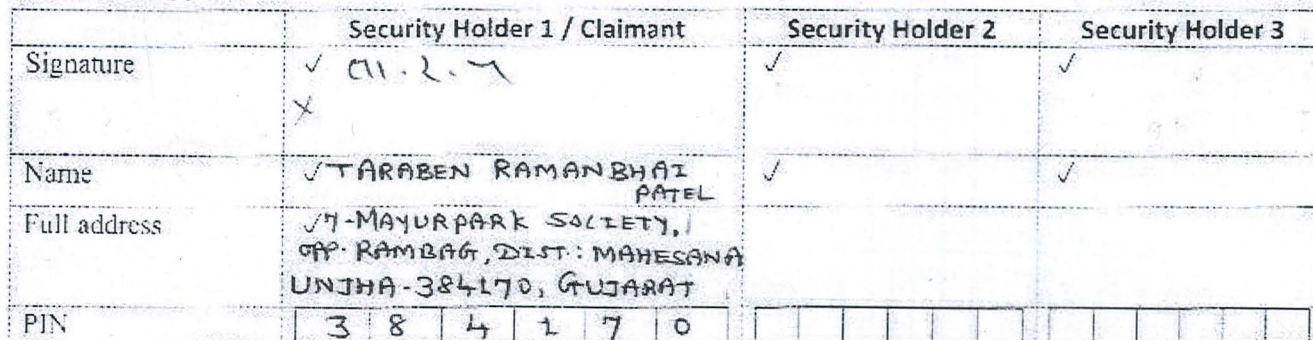 Security Holder 1 / Claimant Security Holder 2 Security Holder 3
Signature ✓ તા.ર.પ ✓ ✓
X
Name ✓ TARABEN RAMANBHAI ✓ ✓
PATEL
Full address ✓ 7-MAYURPARK SOCIETY,
OPP. RAMBAG, DIST.: MAHESANA
UNJHA-384170, GUJARAT
PIN 3 8 4 1 7 0